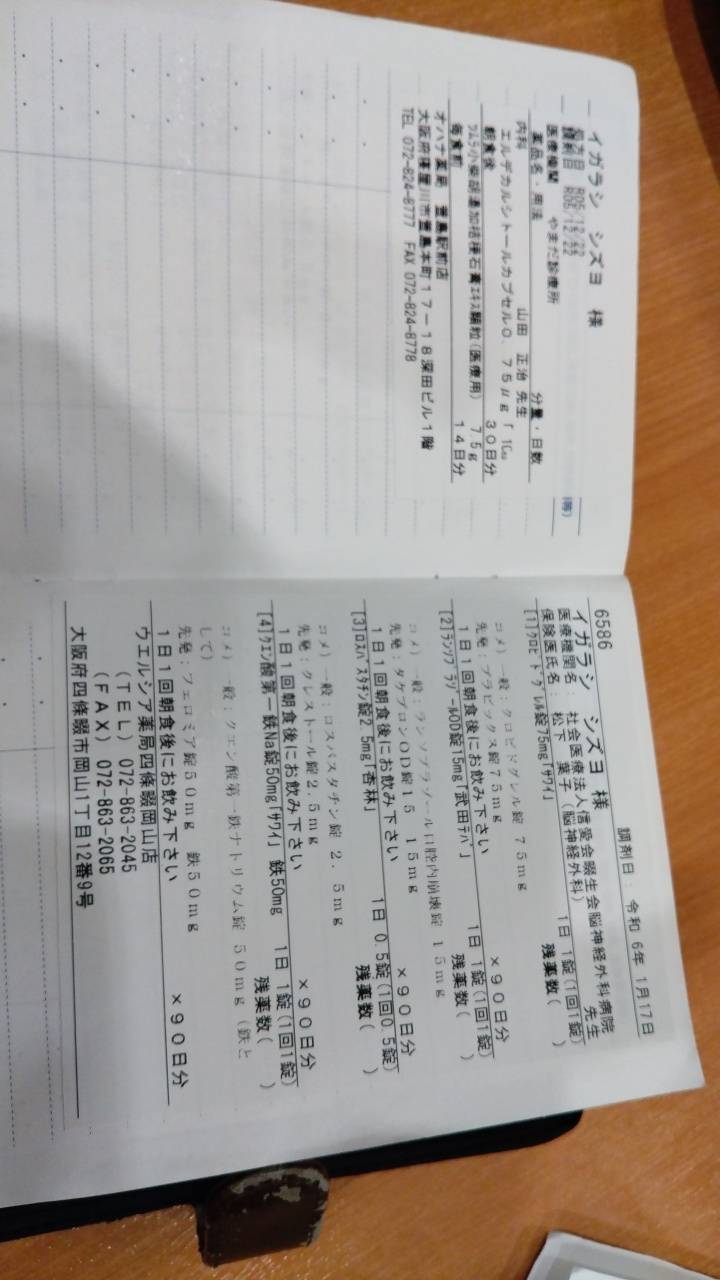 イガラシ シズヨ 様
処方日 R05/12/22
調剤日 R05/12/22
医療機関 やまだ診療所
薬品名・用法 分量・日数
内科 山田 正治 先生
エルデカルシトールカプセル0.75μg「
朝食後 30日分
ツムラ小柴胡湯加桔梗石膏エキス顆粒(医療用) 7.5g
毎食前 14日分
オハナ薬局 萱島駅前店
大阪府寝屋川市萱島本町17-18深田ビル1階
TEL 072-824-8777 FAX 072-824-8778
6586 調剤日: 令和 6年 1月17日
イガラシ シズヨ 様
医療機関名: 社会医療法人信愛会畷生会脳神経外科病院
保険医氏名: 松下 葉子(脳神経外科) 先生
[1]クロピドグレル錠75mg「サワイ」 1日 1錠(1回1錠)
残薬数( )
コメ)一般:クロピドグレル錠 75mg
先発:プラビックス錠75mg
1日1回朝食後にお飲み下さい ×90日分
[2]ランソプラゾールOD錠15mg「武田テバ」 1日 1錠(1回1錠)
残薬数( )
コメ)一般:ランソプラゾール口腔内崩壊錠 15mg
先発:タケプロンOD錠15 15mg
1日1回朝食後にお飲み下さい ×90日分
[3]ロスバスタチン錠2.5mg「杏林」 1日 0.5錠(1回0.5錠)
残薬数( )
コメ)一般:ロスバスタチン錠 2.5mg
先発:クレストール錠2.5mg
1日1回朝食後にお飲み下さい ×90日分
[4]クエン酸第一鉄Na錠50mg「サワイ」 鉄50mg 1日 1錠(1回1錠)
残薬数( )
コメ)一般:クエン酸第一鉄ナトリウム錠 50mg(鉄と
して)
先発:フェロミア錠50mg 鉄50mg
1日1回朝食後にお飲み下さい ×90日分
ウエルシア薬局四條畷岡山店
(TEL) 072-863-2045
(FAX) 072-863-2065
大阪府四條畷市岡山1丁目12番9号